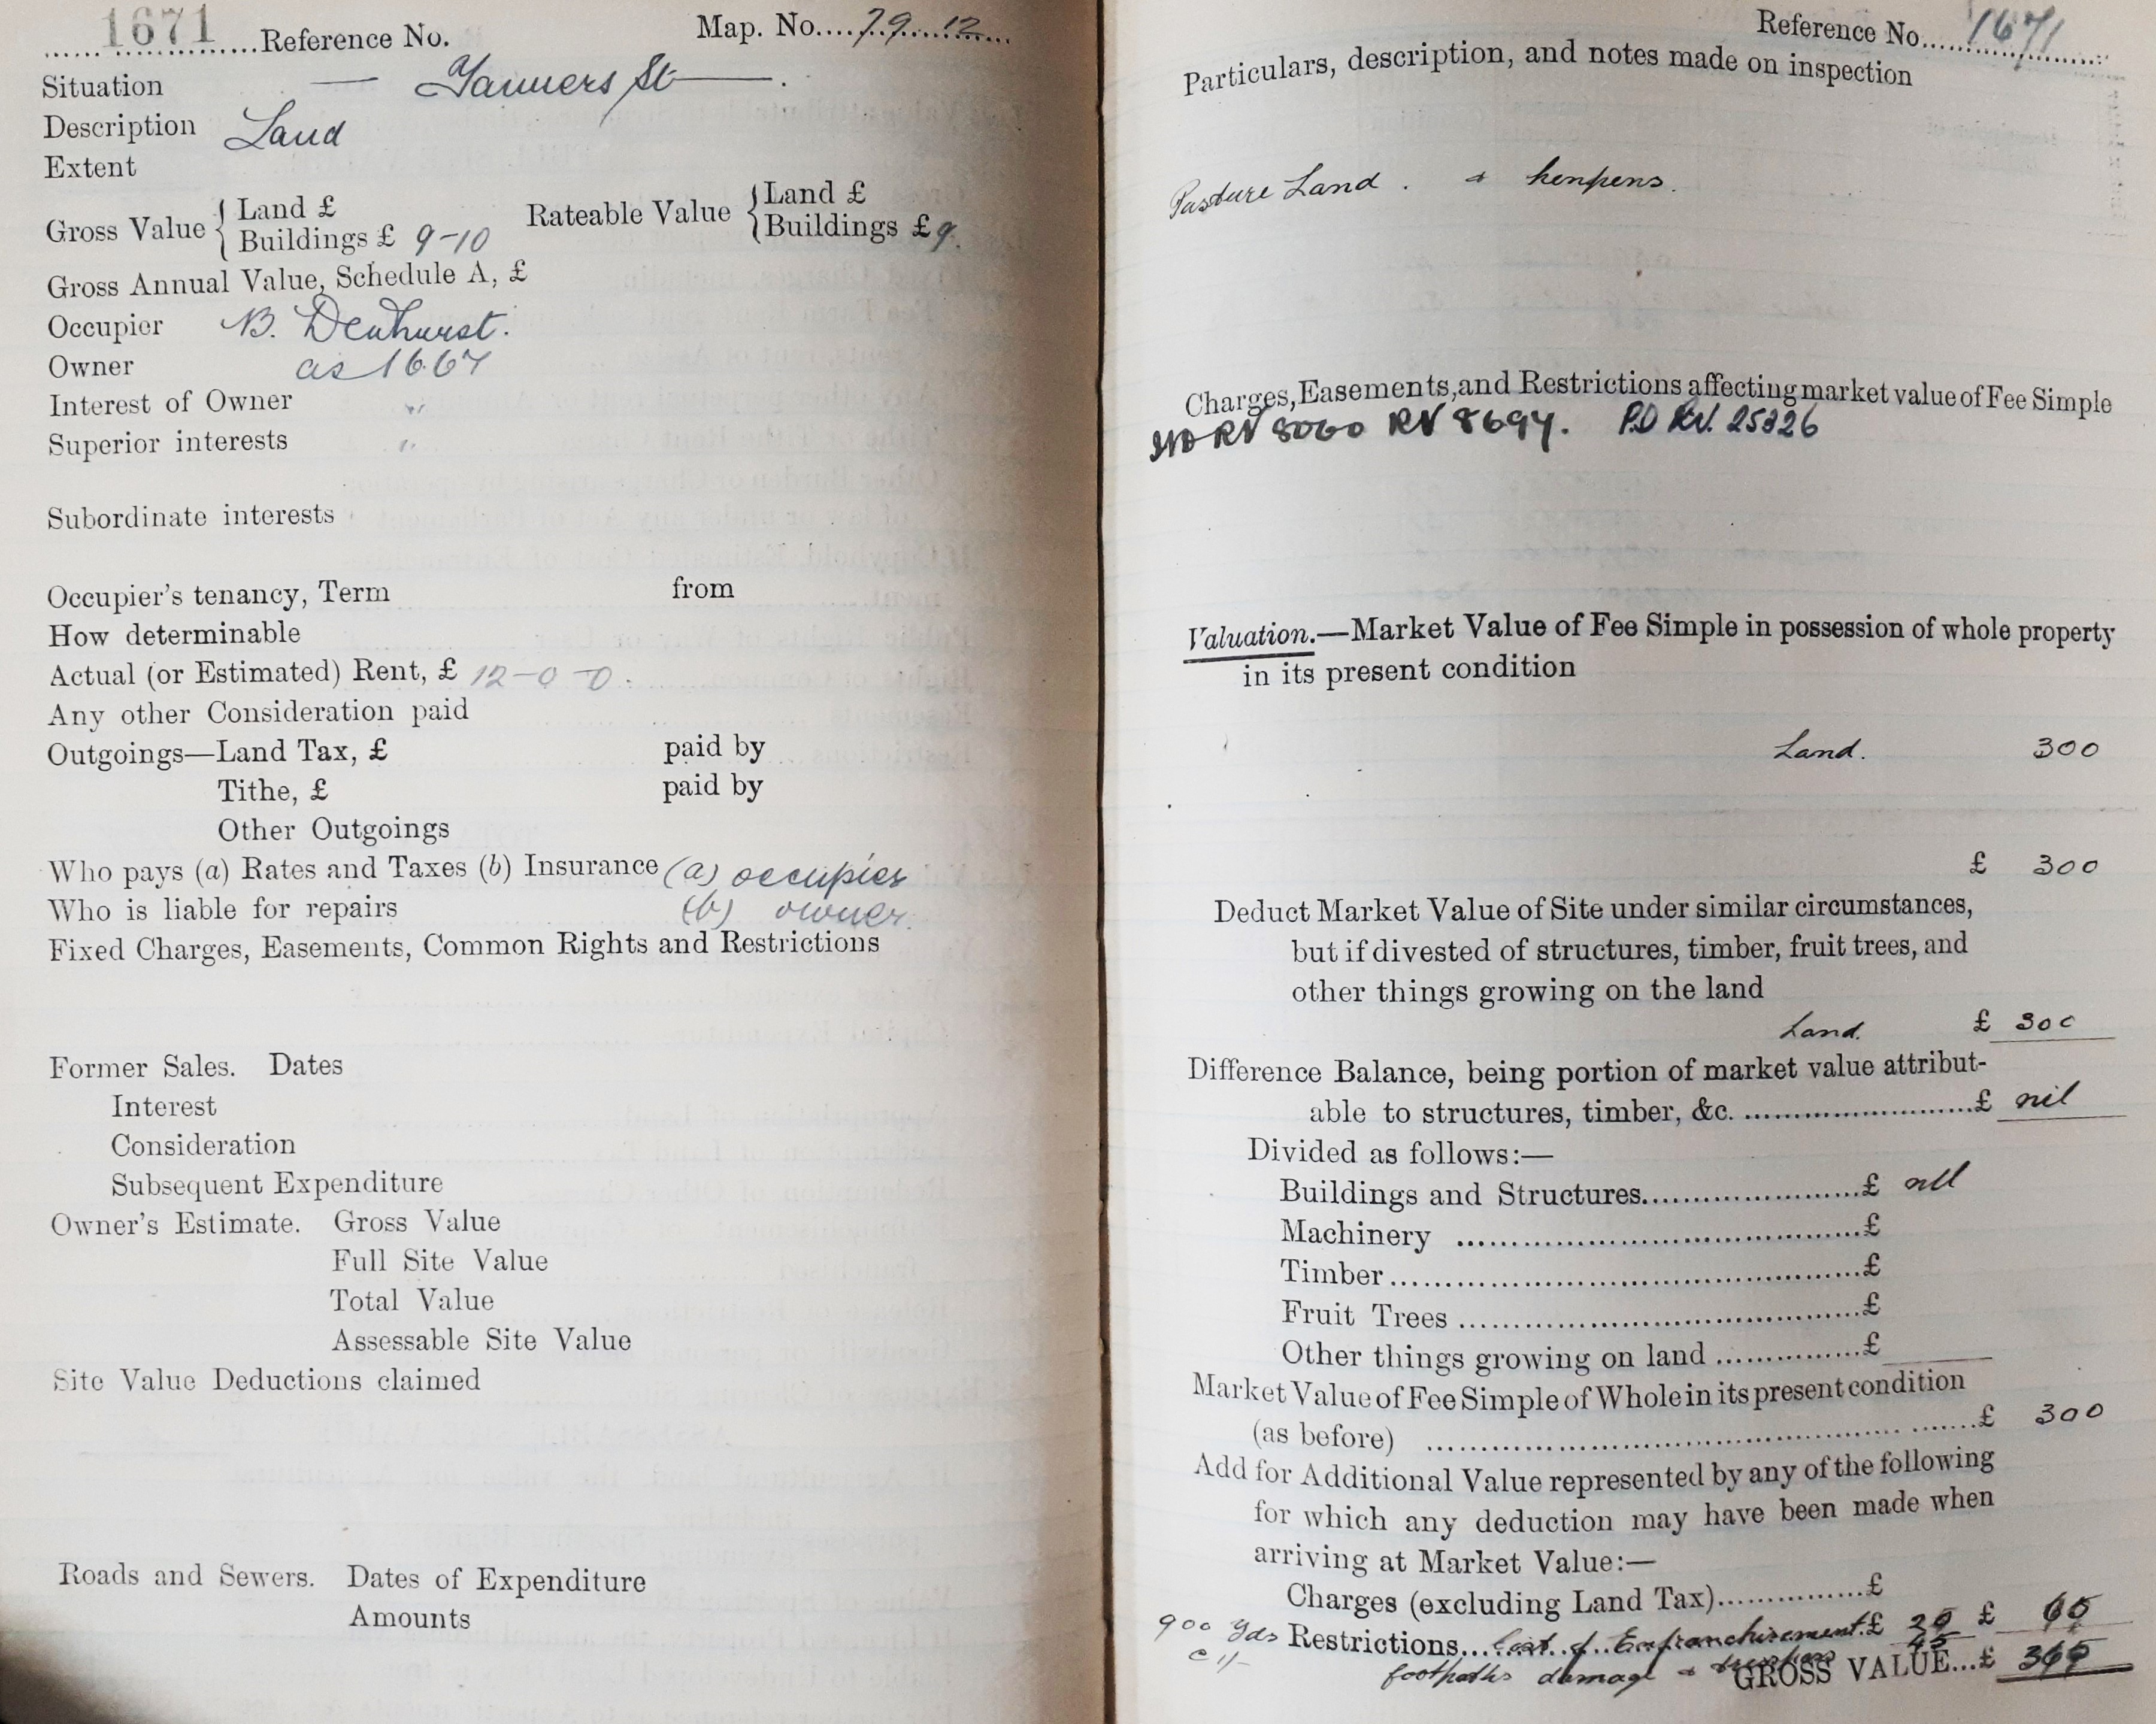 1671 Reference No. Map. No. 79.12
Situation — Tanners St —
Description Land
Extent
Gross Value { Land £
Buildings £ 9-10
Rateable Value { Land £
Buildings £ 9.
Gross Annual Value, Schedule A, £
Occupier B. Dewhurst.
Owner as 1667
Interest of Owner "
Superior interests "
Subordinate interests
Occupier's tenancy, Term from
How determinable
Actual (or Estimated) Rent, £ 12-0-0.
Any other Consideration paid
Outgoings—Land Tax, £ paid by
Tithe, £ paid by
Other Outgoings
Who pays (a) Rates and Taxes (b) Insurance (a) occupier
Who is liable for repairs (b) owner.
Fixed Charges, Easements, Common Rights and Restrictions
Former Sales. Dates
Interest
Consideration
Subsequent Expenditure
Owner's Estimate. Gross Value
Full Site Value
Total Value
Assessable Site Value
Site Value Deductions claimed
Roads and Sewers. Dates of Expenditure
Amounts
Reference No. 1671
Particulars, description, and notes made on inspection
Pasture Land. & henpens.
Charges, Easements, and Restrictions affecting market value of Fee Simple
RV 8060 RV 8694. P.D RV. 25326
Valuation.—Market Value of Fee Simple in possession of whole property
in its present condition
Land. 300
£ 300
Deduct Market Value of Site under similar circumstances,
but if divested of structures, timber, fruit trees, and
other things growing on the land
Land. £ 300
Difference Balance, being portion of market value attribut-
able to structures, timber, &c. £ nil
Divided as follows:—
Buildings and Structures £ nil
Machinery £
Timber £
Fruit Trees £
Other things growing on land £
Market Value of Fee Simple of Whole in its present condition
(as before) £ 300
Add for Additional Value represented by any of the following
for which any deduction may have been made when
arriving at Market Value:—
Charges (excluding Land Tax) £
900 yds Restrictions Cost of Enfranchisement £ 20 £ 65
@ 1/- footpaths damage & 45 GROSS VALUE £ 365